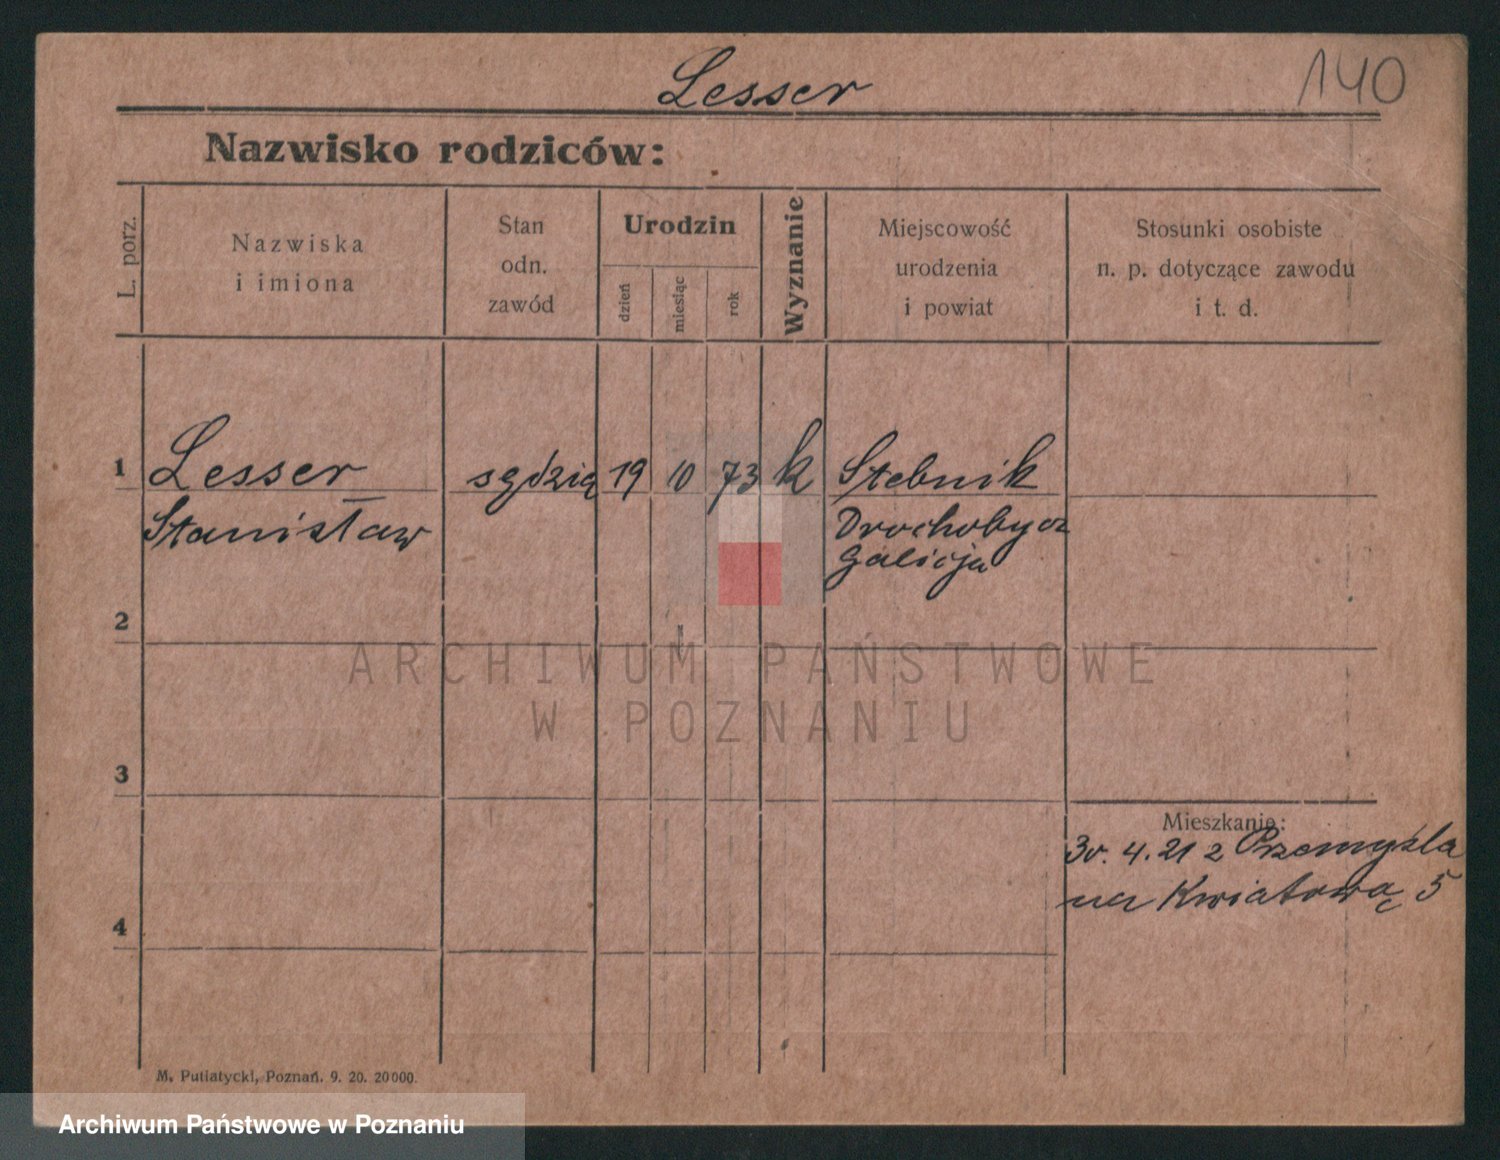 Lesser
140
Nazwisko rodziców:
L. porz.
Nazwiska
i imiona
Stan
odn.
zawód
Urodzin
dzień
miesiąc
rok
Wyznanie
Miejscowość
urodzenia
i powiat
Stosunki osobiste
n. p. dotyczące zawodu
i t. d.
1 Lesser sędzią 19 10 73 k Stebnik
Stanisław Drochobycz
Galicja
2
ARCHIWUM PAŃSTWOWE
W POZNANIU
3
Mieszkanie:
30. 4. 21 z Przemyśla
na Kwiatową 5
4
M. Putiatycki, Poznań. 9. 20. 20000.
Archiwum Państwowe w Poznaniu